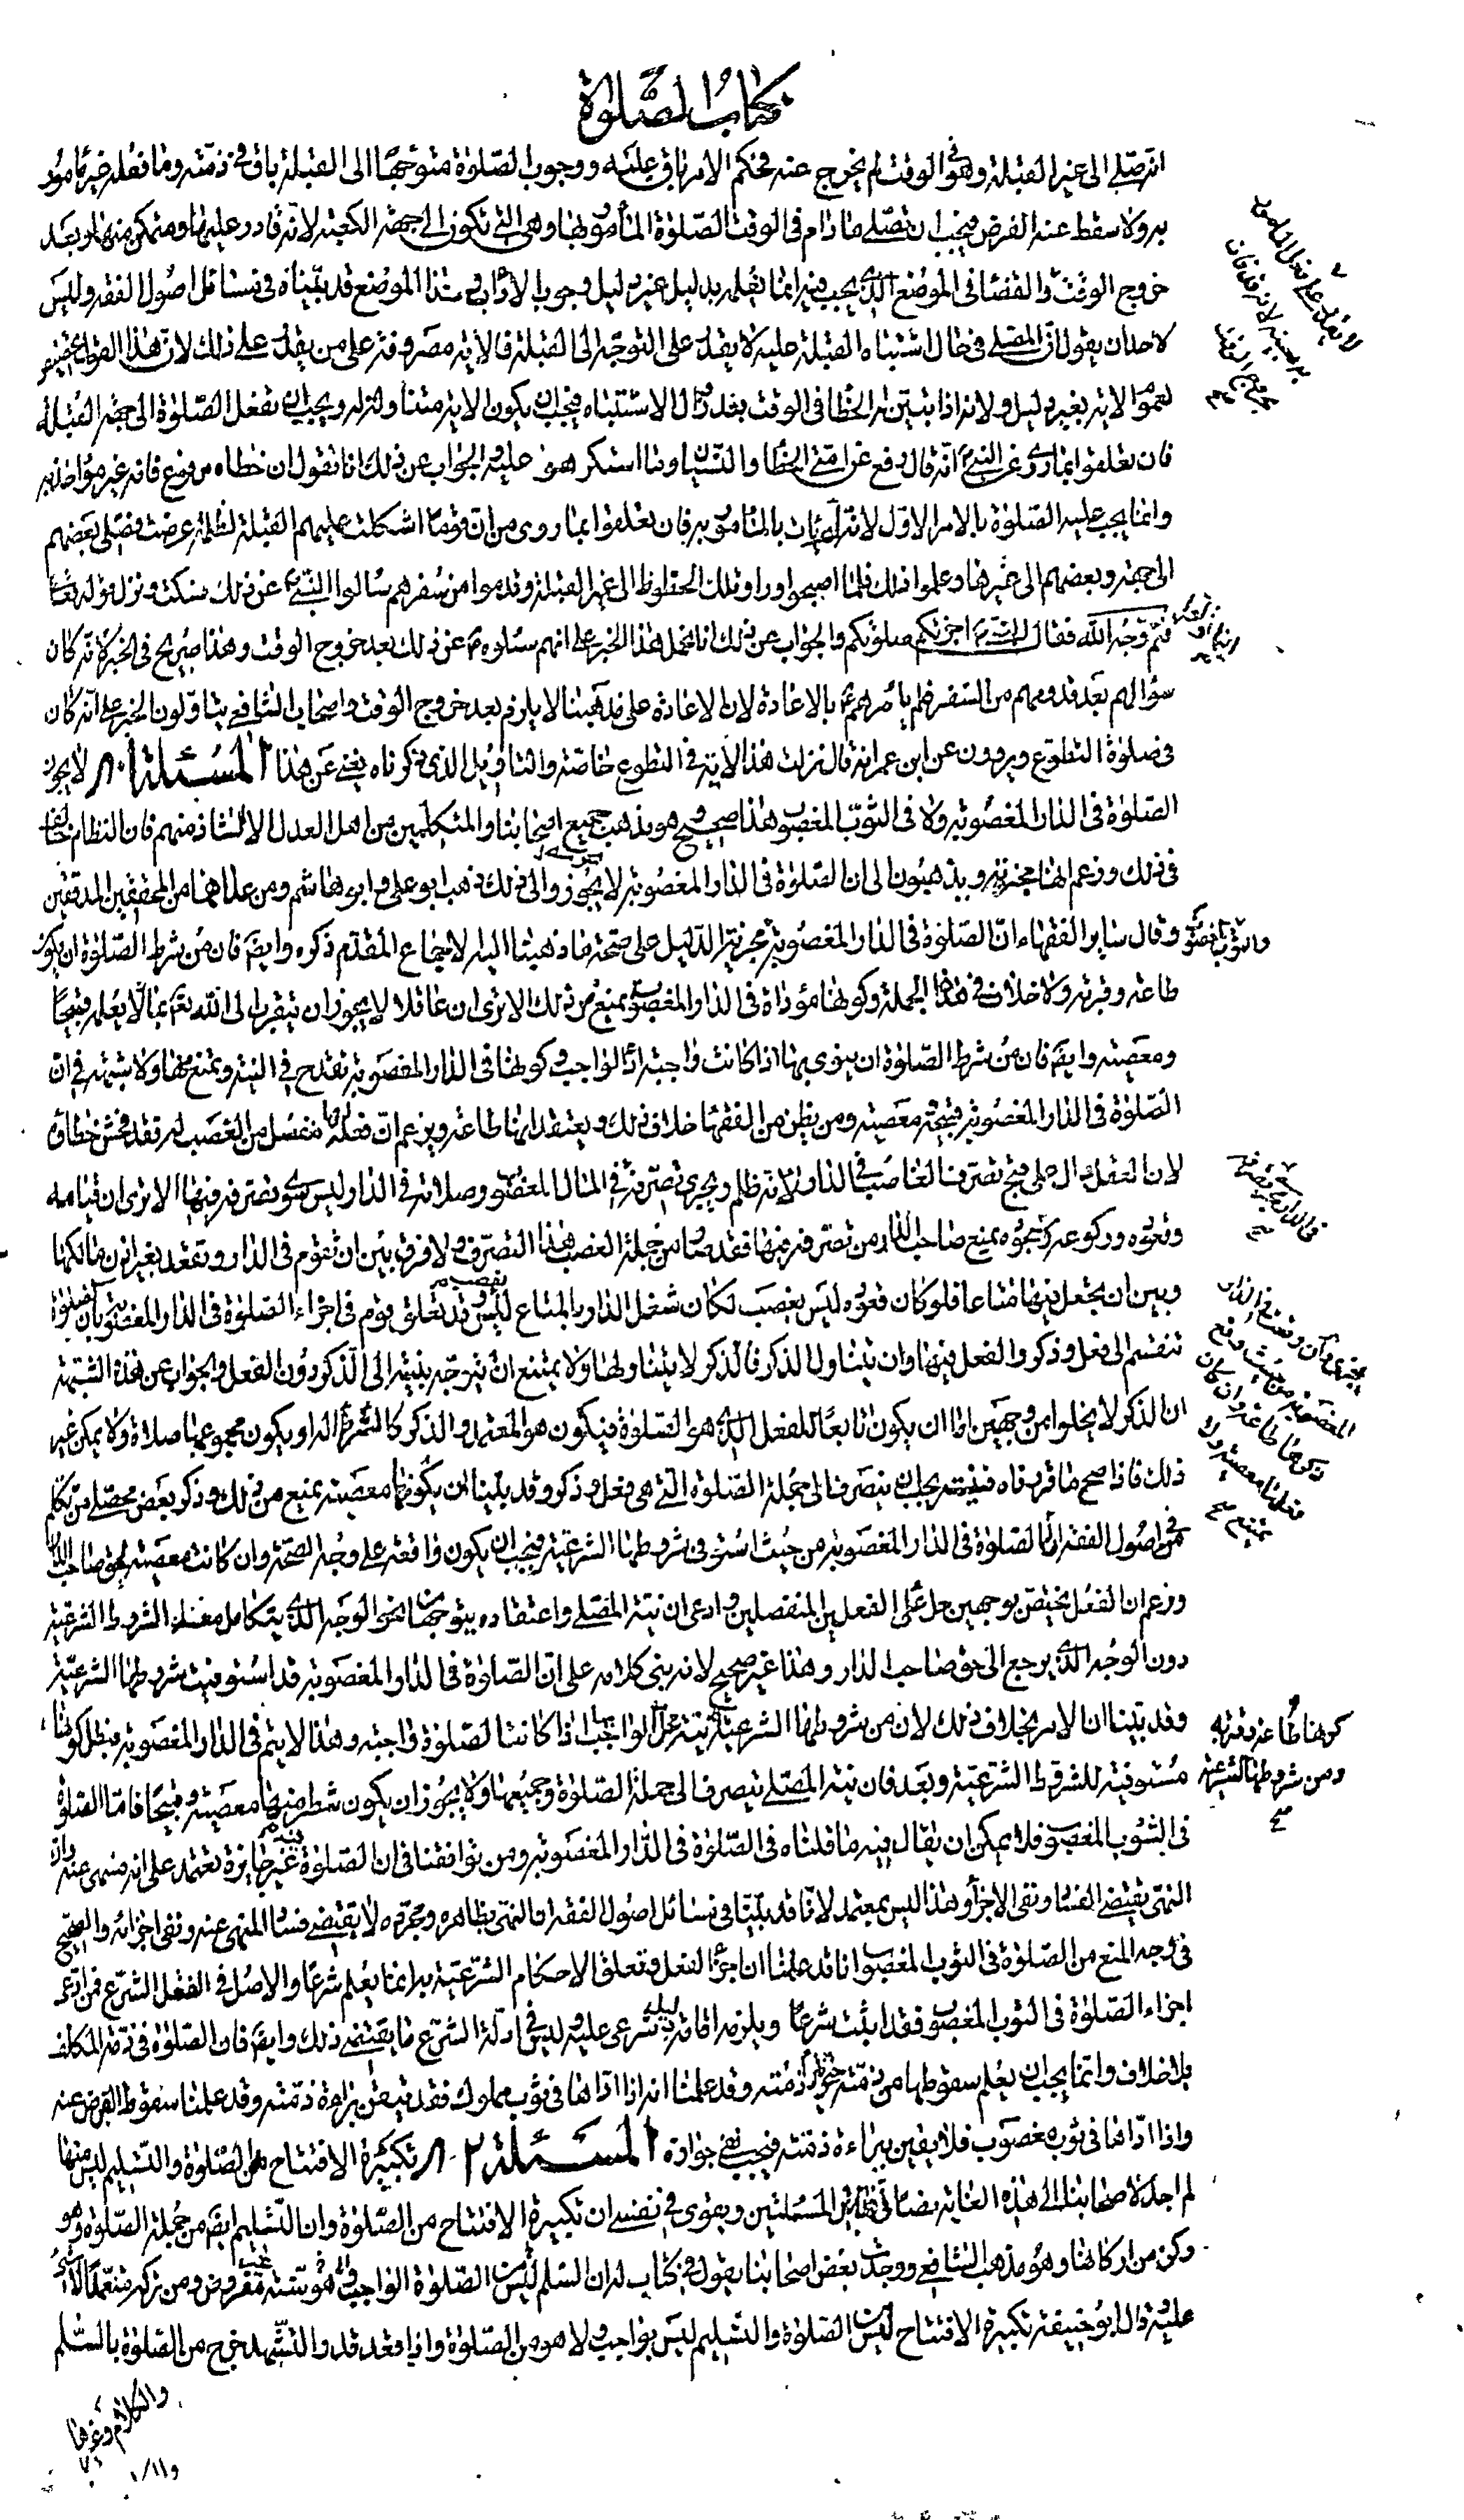 كتاب الصلوة
انه صلى الى غير القبلة وهو في الوقت لم يخرج عنه فحكم الامر باق عليه ووجوب الصلوة متوجها الى القبلة باق في ذمته وما فعله غير مامور
به ولا سقط عنه الفرض فيجب ان يصلى ما دام في الوقت الصلوة المأمور بها وهى التي تكون الى جهة الكعبة لانه قادر عليها ومتمكن منها وبعد
خروج الوقت والقضا في الموضع الذى يجب فيه انما يعلم بدليل غير دليل وجوب الاداء في هذا الموضع قد بيناه في مسائل اصول الفقه وليس
لاحد ان يقول ان المصلى في حال اشتباه القبلة عليه لا يقدر على التوجه الى القبلة فالاية مصروفة على من يقدر على ذلك لان هذا القول تخصيص
لعموم الاية بغير دليل ولانه اذا تبين له الخطأ في الوقت بعد زوال الاشتباه فيجب ان يكون الاية متناولة له ويجب ان يفعل الصلوة الى جهة القبلة
فان تعلقوا بما روى عن النبي ع انه قال رفع عن امتى الخطأ والنسيان وما استكرهوا عليه والجواب عن ذلك انا نقول ان خطاه مرفوع فانه غير مؤاخذ به
وانما يجب عليه الصلوة بالامر الاول لانه لم يأت بالمأمور به فان تعلقوا بما روى من ان قوما اشكلت عليهم القبلة لظلمة عرضت فصلى بعضهم
الى جهة وبعضهم الى غيرها وعلموا ذلك فلما اصبحوا وراوا تلك الخطوط الى غير القبلة وقدموا من سفرهم سالوا النبى ع عن ذلك فسكت ونزل قوله تعالى
فثم وجه الله فقال النبي ع اجزتكم صلوتكم والجواب عن ذلك انا نحمل هذا الخبر على انهم سئلوه ع عن ذلك بعد خروج الوقت وهذا صريح في الخبر لانه كان
سؤالهم بعد قدومهم من السفر فلم يأمرهم ع بالاعادة لان الاعادة على مذهبنا لا يلزم بعد خروج الوقت واصحاب الشافعى يتأولون الخبر على انه كان
في صلوة التطوع ويروون عن ابن عمر انه قال نزلت هذه الاية في التطوع خاصة والتاويل الذى ذكرناه يغنى عن هذا المسئلة ٨٠ لا يجوز
الصلوة في الدار المغصوبة ولا في الثوب المغصوب هذا صحيح وهو مذهب جميع اصحابنا والمتكلمين من اهل العدل الا الشاذ منهم فان النظام خالف
في ذلك وزعم انها مجزية ويذهبون الى ان الصلوة في الدار المغصوبة لا يجوز والى ذلك ذهب ابو على وابو هاشم ومن عداهما من المحققين المدققين
وقال ساير الفقهاء ان الصلوة في الدار المغصوبة والثوب المغصوب مجزية الدليل على صحة ما ذهبنا اليه الاجماع المقدم ذكره وايضا فان من شرط الصلوة ان يكون
طاعة وقربة ولا خلاف في هذه الجملة وكونها مؤداة في الدار المغصوبة يمنع من ذلك الا ترى ان عاقلا لا يجوز ان يتقرب الى الله تعم بما لا يعلمه قبيحا
ومعصية وايضا فان من شرط الصلوة ان ينوى بها اذا كانت واجبة اداء الواجب وكونها في الدار المغصوبة تقدح في النية ويمنع منها ولا شبهة في ان
الصلوة في الدار المغصوبة قبيحة معصية ومن يظن من الفقها خلاف ذلك ويعتقد انها طاعة ويزعم ان فعله لها منفصل من الغصب له فقد فحش خطاؤه
لان العقل الاجلى قبح تصرف الغاصب في الدار ولانه ظلم ويجرى تصرفه في المال المغصوب وصلاته في الدار وليس سوى تصرفه فيها الا ترى ان قيامه
وقعوده وركوعه وسجوده يمنع صاحب الدار من تصرفه فيها فقد صار من جملة الغصب هذا التصرف ولا فرق بين ان تقوم في الدار وتقعد بغير اذن مالكها
وبين ان يجعل فيها متاعا فلو كان قعوده ليس بغصب لكان شغل الدار بالمتاع ليس بغصب وقد تعلق قوم في اجزاء الصلوة في الدار المغصوبة بان الصلوة
تنقسم الى فعل وذكر والفعل فيها وان تناول الذكر فالذكر لا يتناولها ولا يمتنع ان يتوجه بنيته الى الذكر دون الفعل والجواب عن هذه الشبهة
ان الذكر لا يخلوا من وجهين اما ان يكون تابعا للفعل الذى هو الصلوة فيكون هو المعتمد والذكر كالشرط له او يكون مجموعهما صلاة ولا يمكن غير
ذلك فاذا صح ما قررناه فنيته يجب ان ينصرف الى جملة الصلوة التي هي فعل وذكر وقد بينا ان كونها معصية يمنع من ذلك وذكر بعض محصلى من تكلم
في اصول الفقه ان الصلوة في الدار المغصوبة من حيث استوفى شروطها الشرعية فيجب ان يكون واقعة على وجه الصحة وان كانت معصية لحق صاحب الدار
وزعم ان الفعل يختص بوجهين حل محل الفعلين المنفصلين وادعى ان نية المصلى واعتقاده يتوجهان نحو الوجه الذى يتكامل معه الشروط الشرعية
دون الوجه الذى يرجع الى حق صاحب الدار وهذا غير صحيح لانه بنى كلامه على ان الصلوة في الدار المغصوبة قد استوفيت شروطها الشرعية
وقد بينا ان الامر بخلاف ذلك لان من شروطها الشرعية نية الواجب اذا كانت الصلوة واجبة وهذا لا يتم في الدار المغصوبة فبطل كونها
مستوفية للشروط الشرعية وبعد فان نية المصلى ينصرف الى جملة الصلوة وجميعها ولا يجوز ان يكون شطر منها معصية وقبيحا فاما الصلوة
في الثوب المغصوب فلا يمكن ان يقال فيه ما قلناه في الصلوة في الدار المغصوبة ومن توافقنا في ان الصلوة فيه غير جايزة تعتمد على انه منهى عنه وان
النهى يقتضى الفساد ونفى الاجزاء وهذا ليس بمعتمد لانا قد بينا في مسائل اصول الفقه ان النهى بظاهره ومجرده لا يقتضى فساد المنهى عنه ونفى اجزائه والصحيح
في وجه المنع من الصلوة في الثوب المغصوب انا قد علمنا ان اجزاء الفعل وتعلق الاحكام الشرعية به انما يعلم شرعا والاصل في الفعل الشرع فمن ادعى
اجزاء الصلوة في الثوب المغصوب فقد اثبت شرعا ويلزمه اقامة دليل شرعى عليه وليس في ادلة الشرع ما يقتضى ذلك وايضا فان الصلوة في ذمة المكلف
بلا خلاف وانما يجب ان يعلم سقوطها من ذمته وقد علمنا انه اذا اداها في ثوب مملوك فقد تيقن براءة ذمته وقد علمنا سقوط الفرض عنه
واذا اداها في ثوب مغصوب فلا يقين ببراءة ذمته فيجب نفى جوازه المسئلة ٨٢ تكبيرة الافتتاح من الصلوة والتسليم ليس منها
لم اجد لاصحابنا الى هذه الغاية نصا في هاتين المسئلتين ويقوى في نفسى ان تكبيرة الافتتاح من الصلوة وان التسليم ايضا من جملة الصلوة وهو
ركن من اركانها وهو مذهب الشافعى ووجدت بعض اصحابنا يقول في كتاب له ان السلم ليس من الصلوة الواجب هو سنة غير مفروض ومن تركه متعمدا لا شئ
عليه وقال ابو حنيفة تكبيرة الافتتاح ليس من الصلوة والتسليم ليس بواجب ولا هو من الصلوة واذا قعد قدر التشهد خرج من الصلوة بالسلم
والكلام وغيرها
كونها طاعة وقربة
ومن شروطها الشرعية